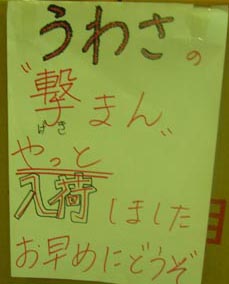 うわさの
"撃まん"
げき
やっと
入荷しました
お早めにどうぞ